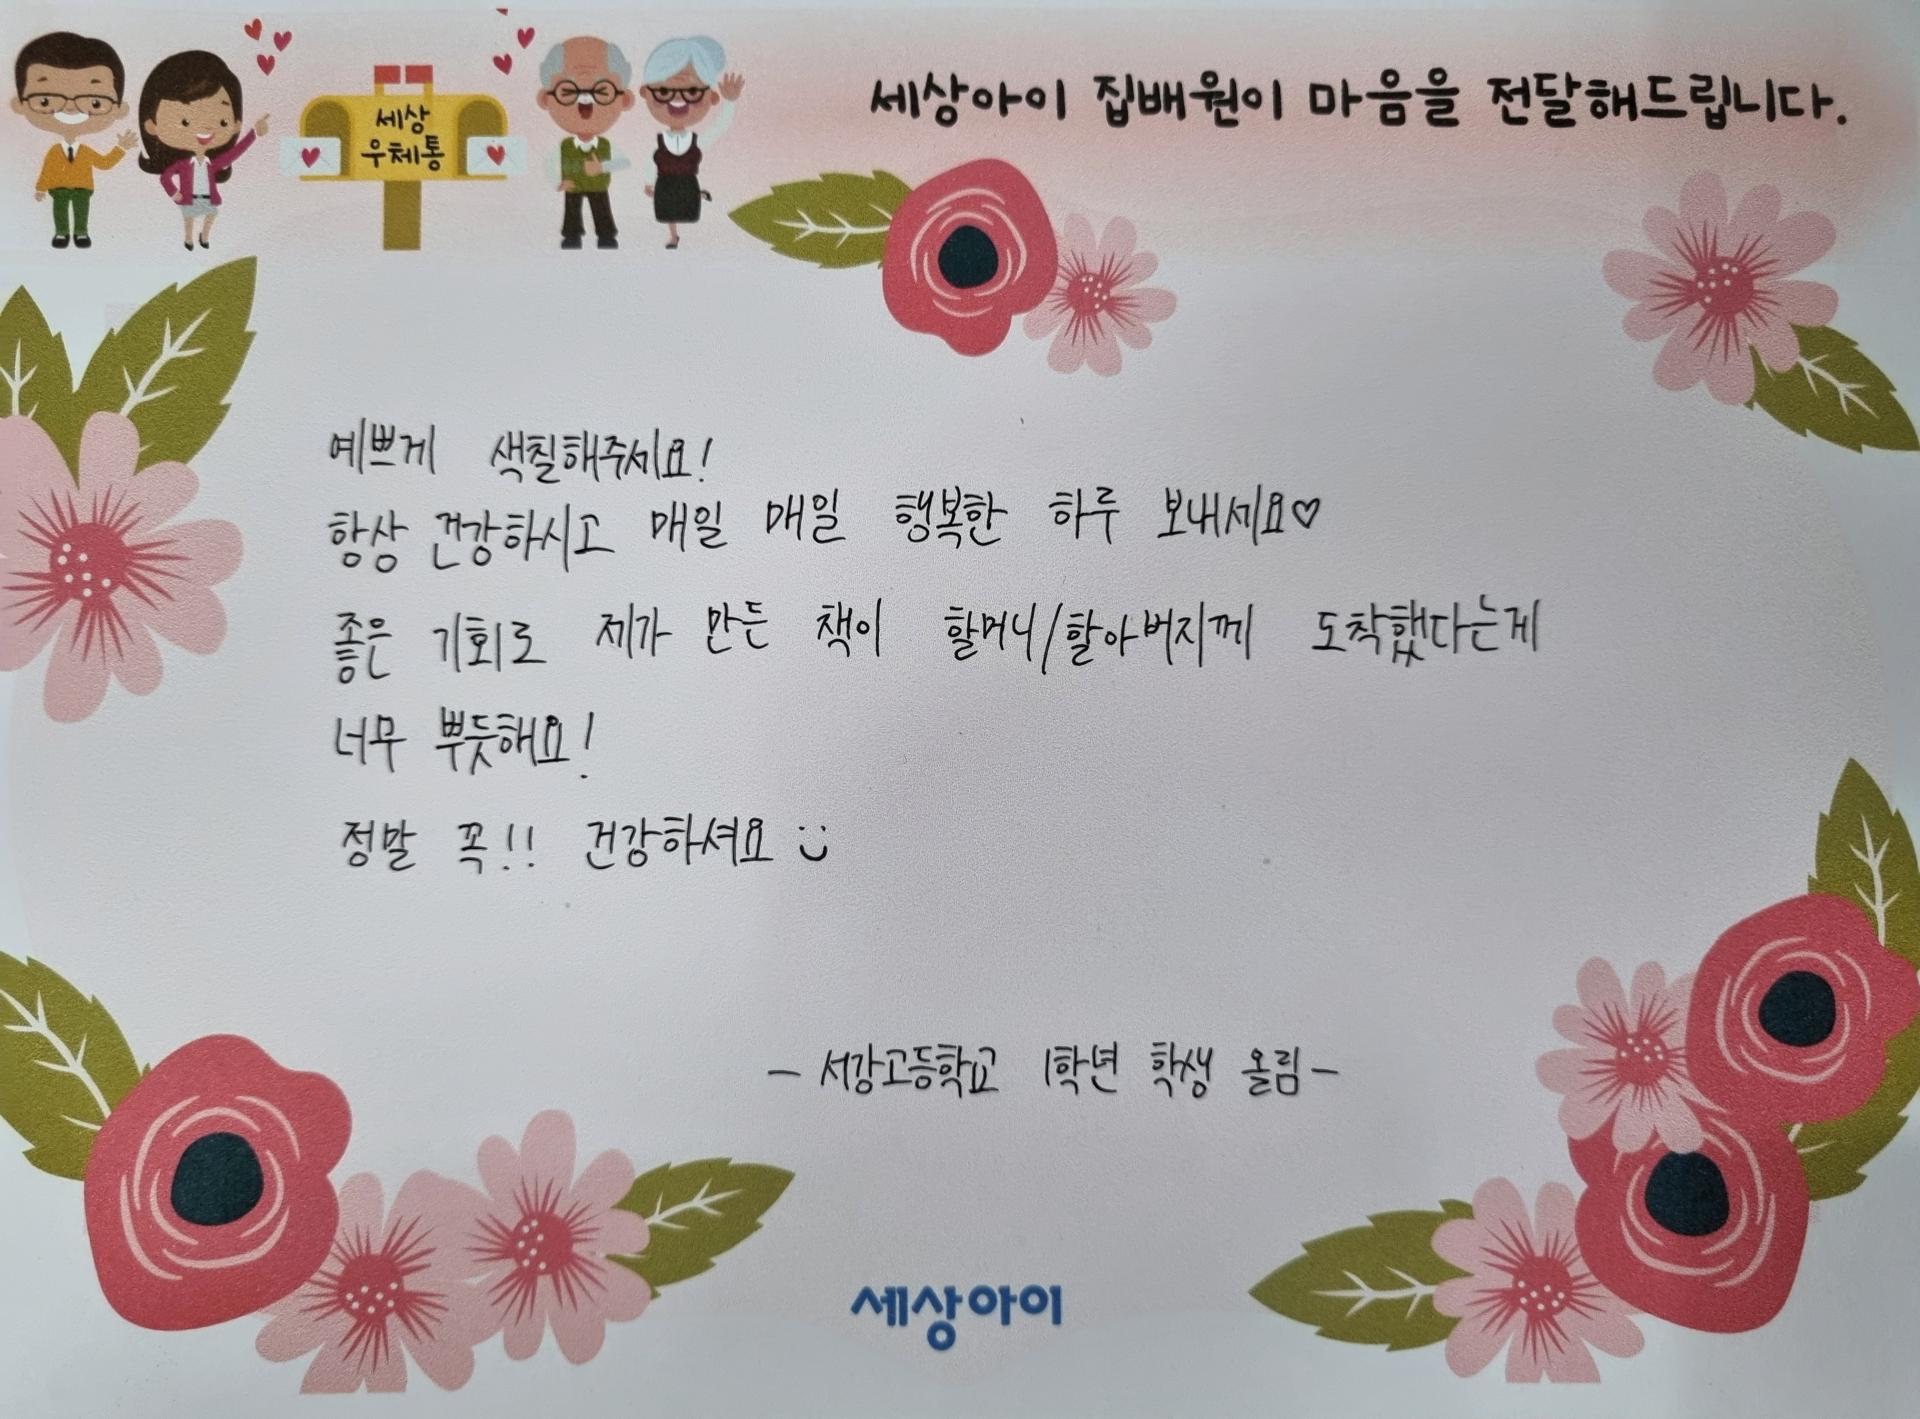 세상아이 집배원이 마음을 전달해드립니다.
세상
우체통
예쁘게 색칠해주세요!
항상 건강하시고 매일 매일 행복한 하루 보내세요♡
좋은 기회로 제가 만든 책이 할머니/할아버지께 도착했다는게
너무 뿌듯해요!
정말 꼭!! 건강하셔요 :)
- 서강고등학교 1학년 학생 올림 -
세상아이